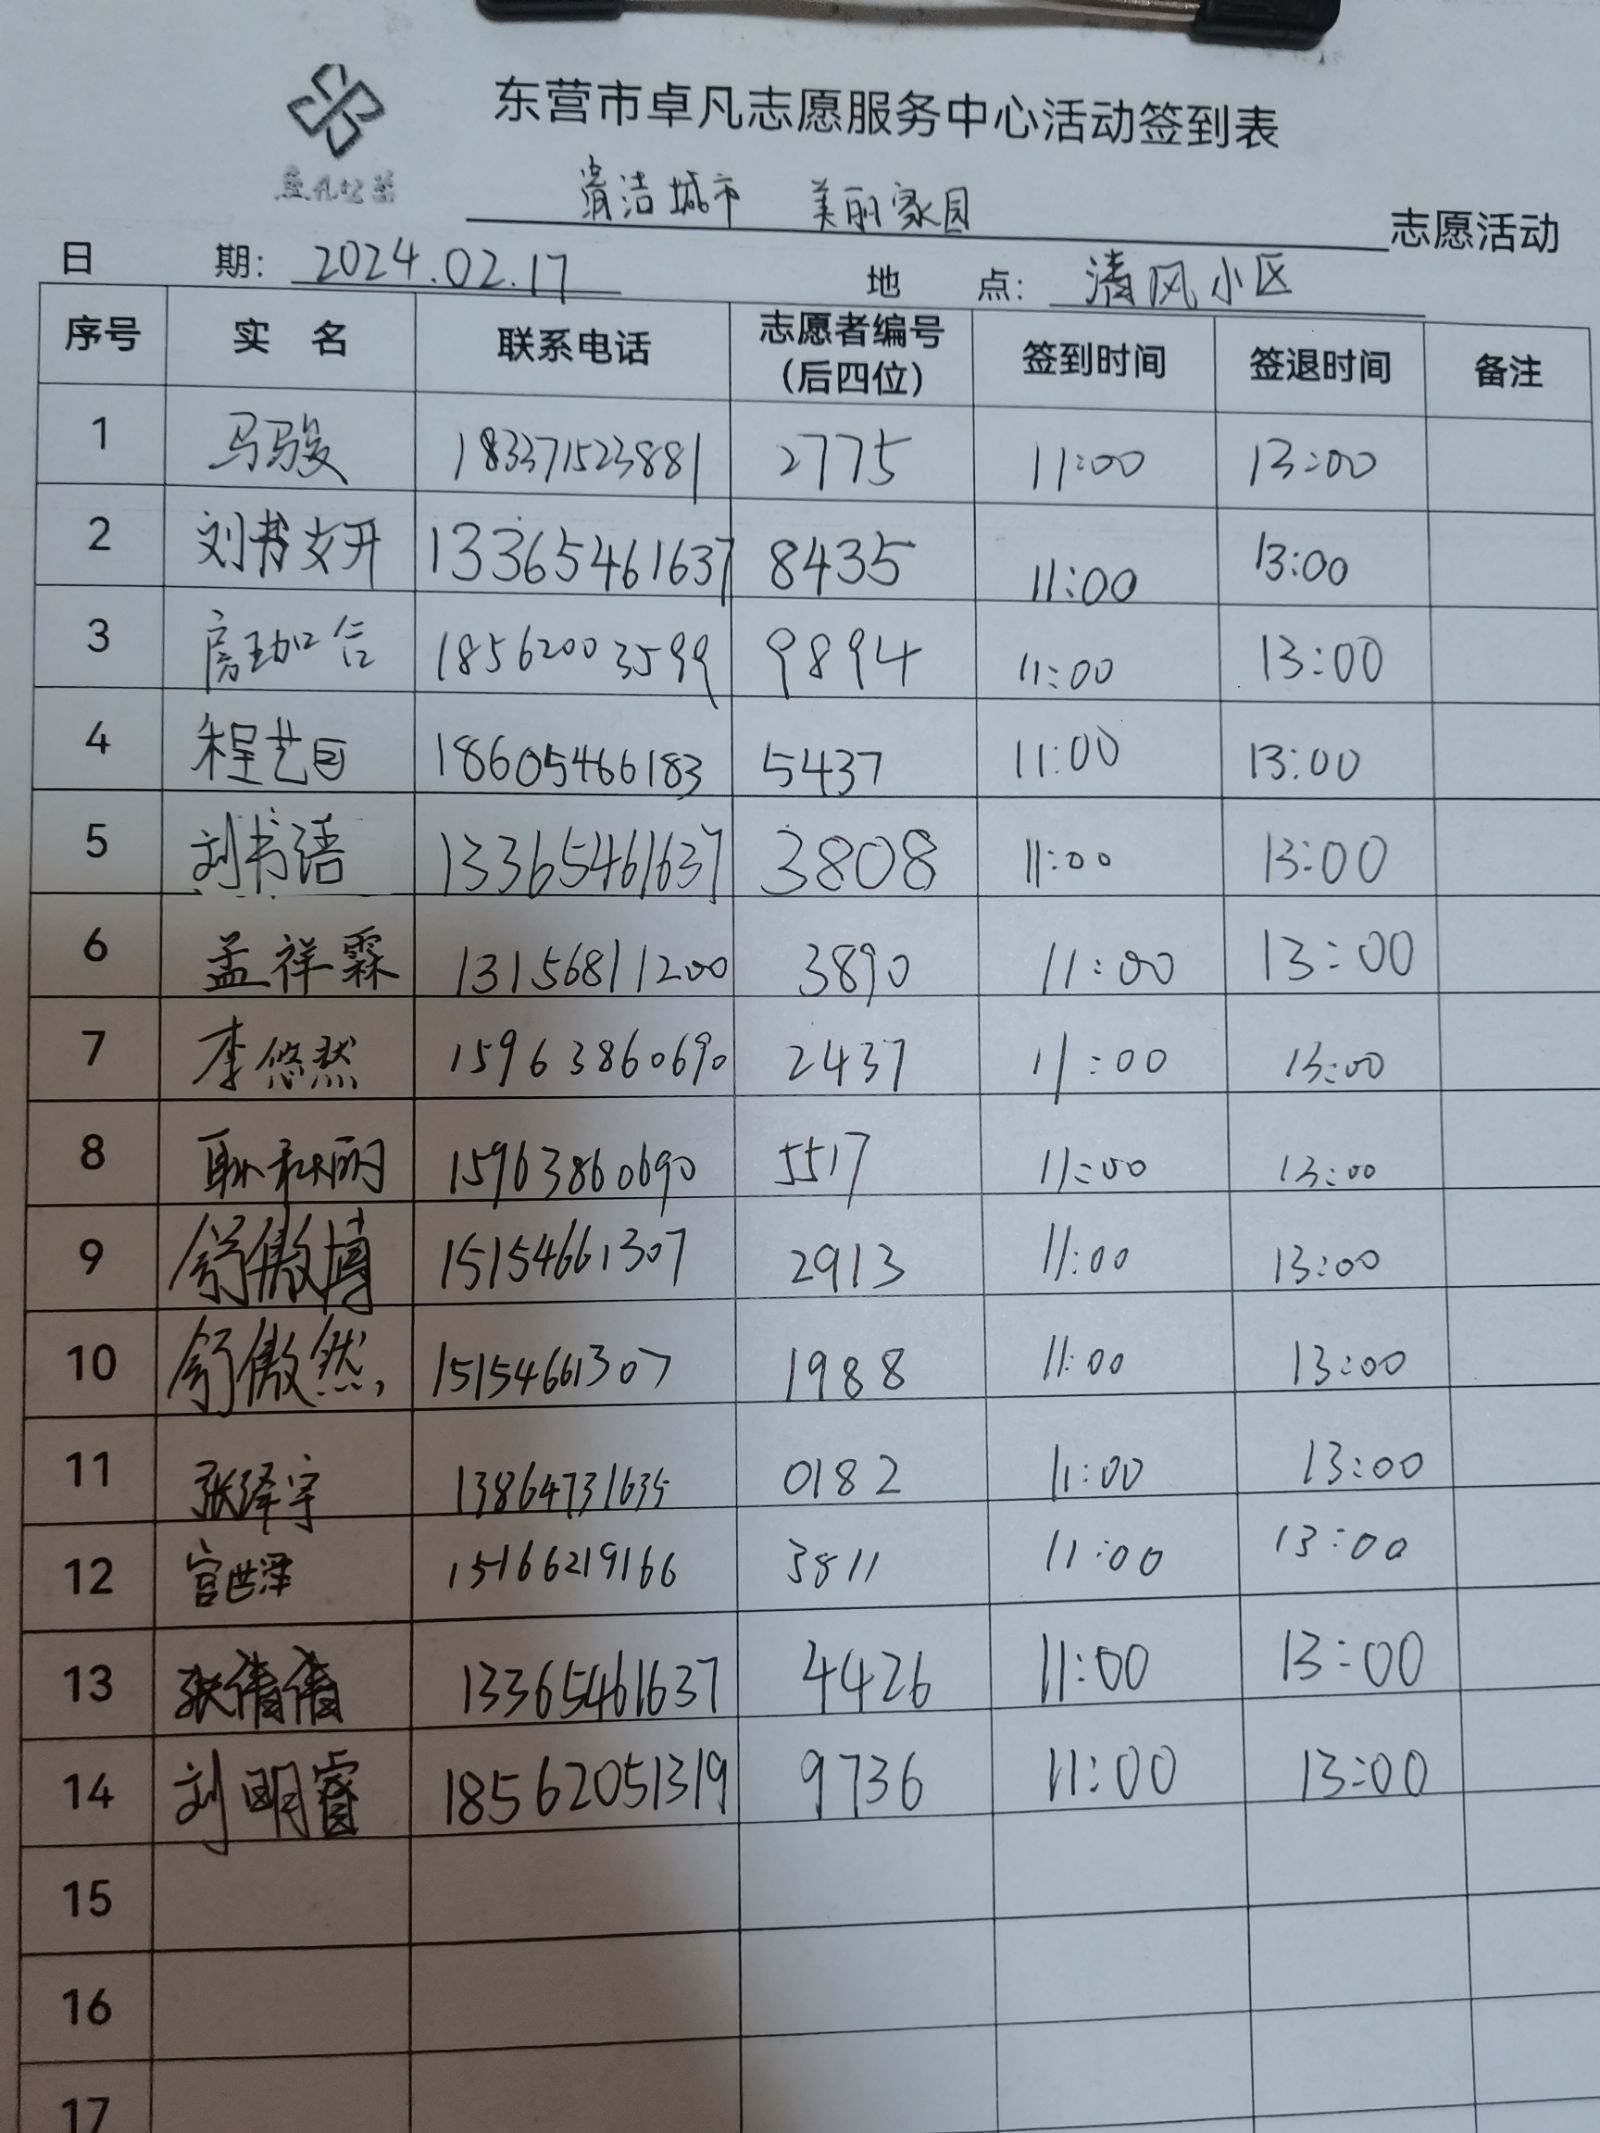 东营市卓凡志愿服务中心活动签到表
清洁城市 美丽家园 志愿活动
日 期: 2024.02.17 地 点: 清风小区
序号 实 名 联系电话 志愿者编号(后四位) 签到时间 签退时间 备注
1 马骏 183371523881 2775 11:00 13:00
2 刘书妍 13365461637 8435 11:00 13:00
3 房珈合 18562003599 9894 11:00 13:00
4 程艺 18605466183 5437 11:00 13:00
5 刘书语 13365461637 3808 11:00 13:00
6 孟祥霖 13156811200 3890 11:00 13:00
7 李悠然 15963860690 2437 11:00 13:00
8 耿和丽 15963860690 5517 11:00 13:00
9 舒傲博 15154661307 2913 11:00 13:00
10 舒傲然 15154661307 1988 11:00 13:00
11 张泽宇 13864731635 0182 11:00 13:00
12 宫世泽 15166219166 3811 11:00 13:00
13 张倩倩 13365461637 4426 11:00 13:00
14 刘明睿 18562051319 9736 11:00 13:00
15
16
17